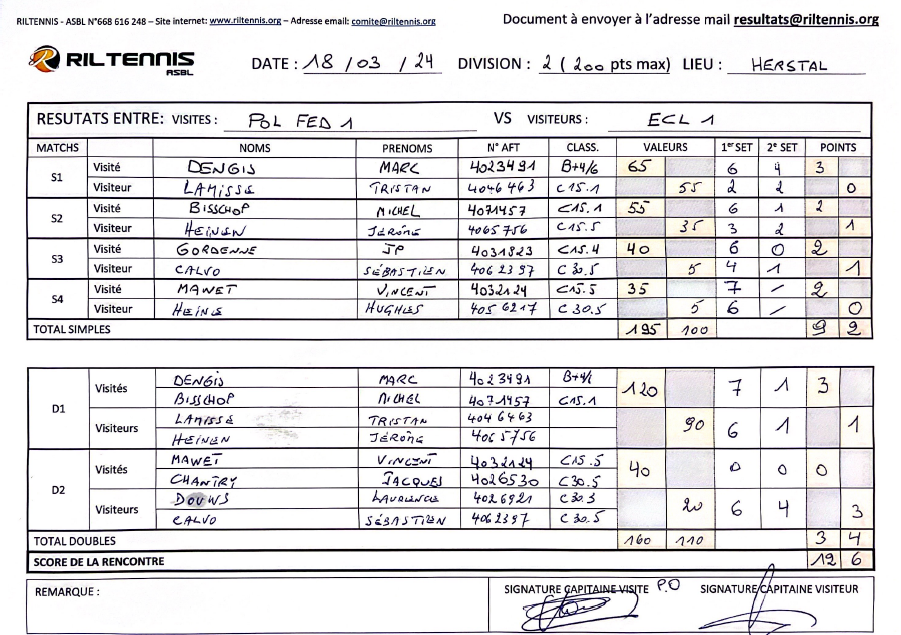 RILTENNIS - ASBL N°668 616 248 – Site internet: www.riltennis.org – Adresse email: comite@riltennis.org
Document à envoyer à l'adresse mail resultats@riltennis.org
RILTENNIS ASBL
DATE : 18 / 03 / 24 DIVISION : 2 ( 200 pts max) LIEU : HERSTAL
RESUTATS ENTRE: VISITES : POL FED 1 VS VISITEURS : ECL 1
MATCHS NOMS PRENOMS N° AFT CLASS. VALEURS 1er SET 2e SET POINTS
S1 Visité DENGIS MARC 4023491 B+4/6 65 6 4 3
Visiteur LAMISSE TRISTAN 4046463 C15.1 55 2 2 0
S2 Visité BISSCHOP MICHEL 4071457 C15.1 55 6 1 2
Visiteur HEINEN JÉRÔME 4065756 C15.5 35 3 2 1
S3 Visité GORDENNE JP 4031823 C15.4 40 6 0 2
Visiteur CALVO SÉBASTIEN 4062397 C30.5 5 4 1 1
S4 Visité MAWET VINCENT 4032124 C15.5 35 7 / 2
Visiteur HEINE HUGHES 4056217 C30.5 5 6 / 0
TOTAL SIMPLES 195 100 9 2
D1 Visités DENGIS MARC 4023491 B+4/6 120 7 1 3
BISSCHOP MICHEL 4071457 C15.1
Visiteurs LAMISSE TRISTAN 4046463 90 6 1 1
HEINEN JÉRÔME 4065756
D2 Visités MAWET VINCENT 4032124 C15.5 40 0 0 0
CHANTRY JACQUES 4026530 C30.5
Visiteurs DOUWS LAURENCE 4026921 C30.3 20 6 4 3
CALVO SÉBASTIEN 4062397 C30.5
TOTAL DOUBLES 160 110 3 4
SCORE DE LA RENCONTRE 12 6
REMARQUE : SIGNATURE CAPITAINE VISITE P.O SIGNATURE CAPITAINE VISITEUR